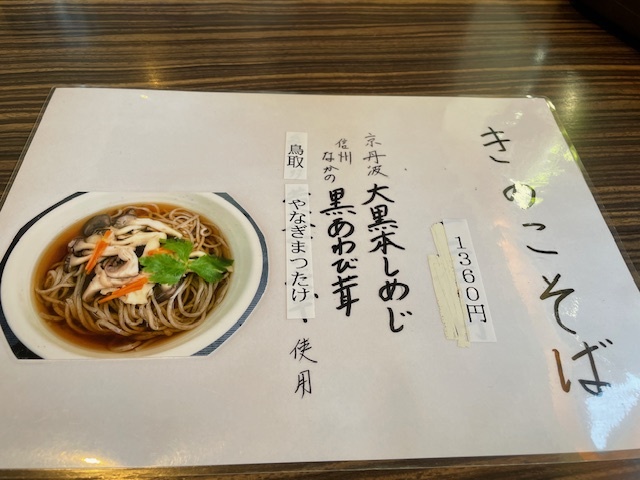 きのこそば
1360円
京丹波 大黒本しめじ
信州なかの 黒あわび茸
鳥取 やなぎまつたけ
使用